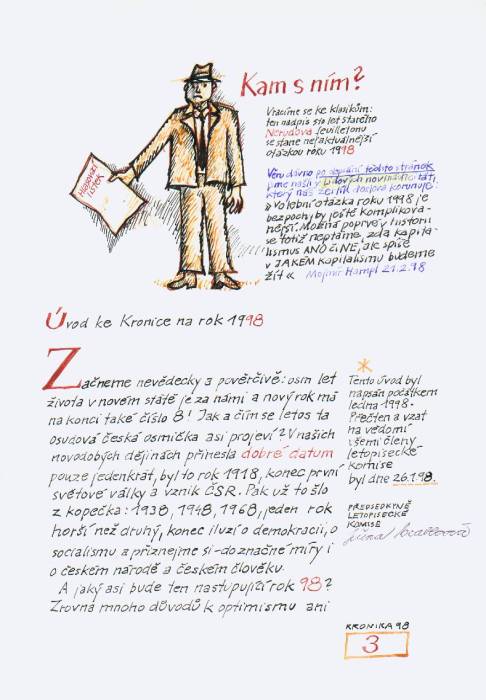 Kam s ním?
HLASOVACÍ
LÍSTEK
Vracíme se ke klasikům:
ten nadpis sto let starého
Nerudova feuilletonu
se stane nejaktuálnější
otázkou roku 1998
Věru dávno po sepsání těchto stránek
jsme našli v
který náš
»Volební otázka roku 1998 je
bezpoch. by ještě komplikova-
nější. Možná poprvé v historii
se totiž neptáme, zda kapita-
lismus ANO či NE, ale spíše
v JAKÉM kapitalismu budeme
žít« Mojmír Hampl 21.2.98
Úvod ke Kronice na rok 1998
Začneme nevědecky a pověrčivě: osm let
života v novém státě je za námi a nový rok má
na konci také číslo 8! Jak a čím se letos ta
osudová česká osmička asi projeví? V našich
novodobých dějinách přinesla dobré datum
pouze jedenkrát, byl to rok 1918, konec první
světové války a vznik ČSR. Pak už to šlo
z kopečka: 1938, 1948, 1968, jeden rok
horší než druhý, konec iluzí o demokracii, o
socialismu a přiznejme si - do značné míry i
o českém národě a českém člověku.
A jaký asi bude ten nastupující rok 98?
Zrovna mnoho důvodů k optimismu ani
*
Tento úvod byl
napsán počátkem
ledna 1998.
Přečten a vzat
na vědomí
všemi členy
letopisecké
komise
byl dne 26.1.98.
PŘEDSEDKYNĚ
LETOPISECKÉ
KOMISE
KRONIKA 98
3